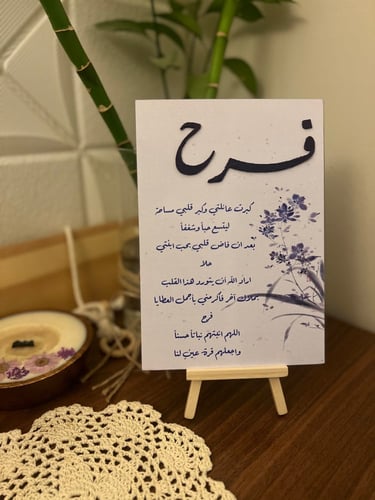 فرح
كبرت عائلتي وكبر قلبي مساحة
ليتسع حباً وشغفاً
بعد ان فاض قلبي بحب ابنتي
حلا
اراد الله ان يتورد هذا القلب
بملاك آخر فاكرمني باجمل العطايا
فرح
اللهم انبتهم نباتاً حسناً
واجعلهم قرة عين لنا